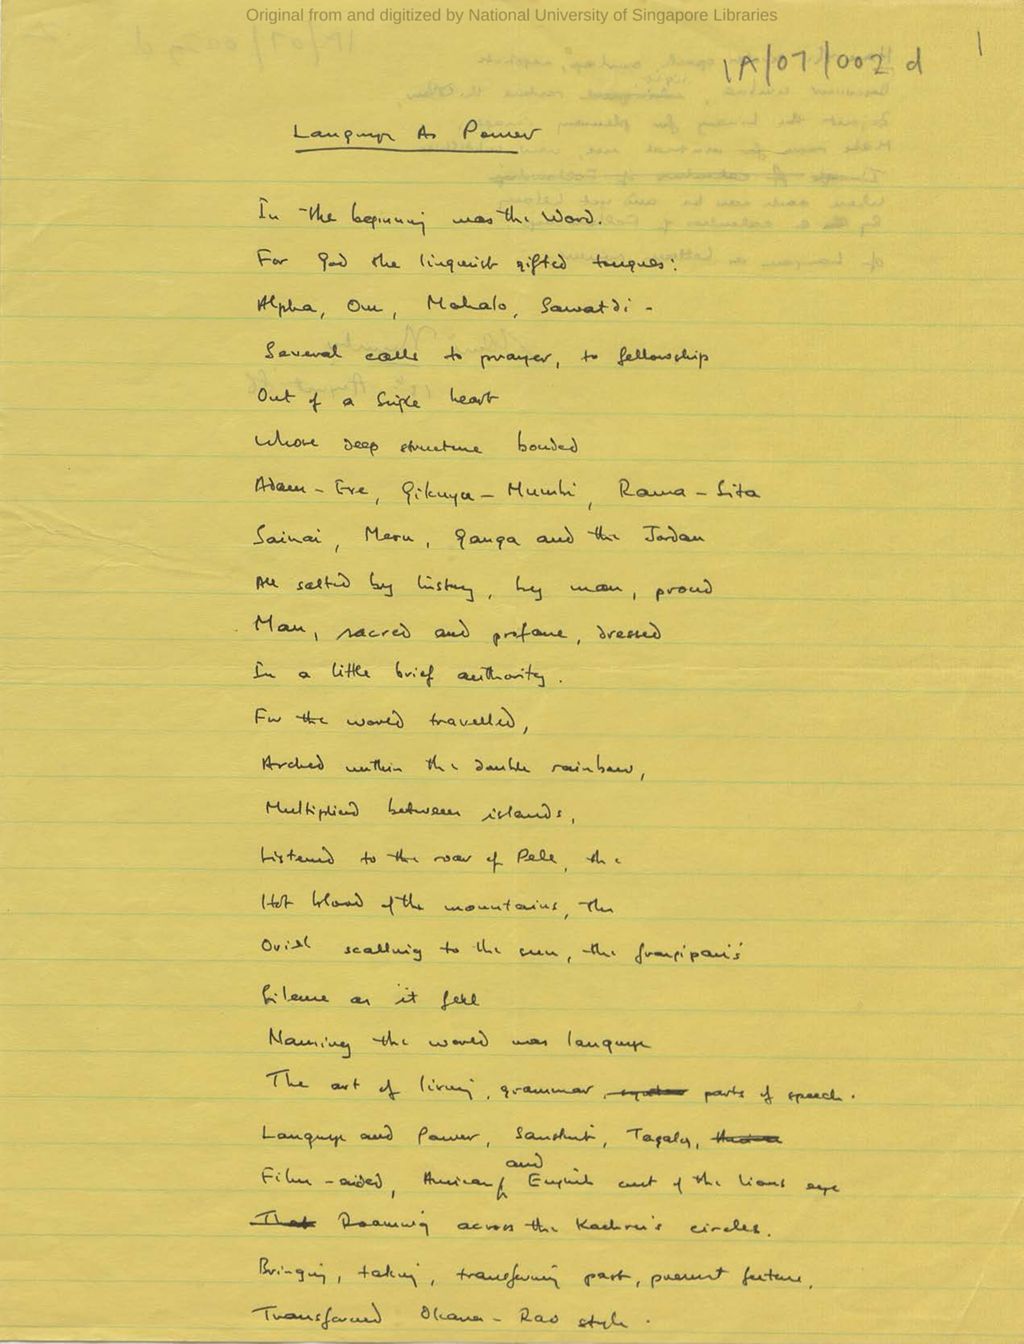 Original from and digitized by National University of Singapore Libraries
1A/07/002 d
1
Language As Power
In the beginning was the Word.
For God the linguist gifted tongues:
Alpha, Om, Mahalo, Sawatdi -
Several calls to prayer, to fellowship
Out of a single heart
Whose deep structure bonded
Adam - Eve, Gikuyu - Mumbi, Rama - Sita
Sainai, Meru, Ganga and the Jordan
All salted by history, by man, proud
Man, sacred and profane, dressed
In a little brief authority.
For the world travelled,
Arched within the double rainbow,
Multiplied between islands,
Listened to the roar of Pele, the
Hot blood of the mountains, the
scalling to the sun, the frangipani's
Silence as it fell
Naming the world was language
The art of living, grammar, parts of speech.
Language and Power, Sanskrit, Tagalog,
Film-aided, American and English out of the lions eye
Roaming across the Kachru's circles.
Bringing, taking, transforming past, present future,
Transformed Okara - Rao style.